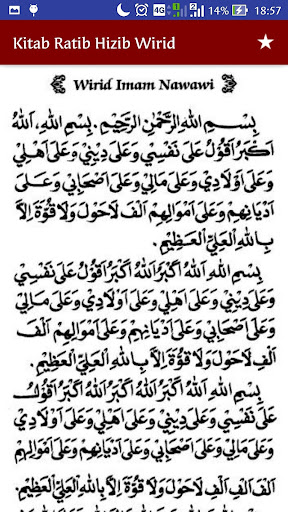 14% 18:57
Kitab Ratib Hizib Wirid
Wirid Imam Nawawi
بِسْــمِ اللهِ الرَّحْمٰنِ الرَّحِيْمِ. بِسْمِ اللهِ، اَللهُ
اَكْبَرُ اَقُوْلُ عَلَى نَفْسِيْ وَعَلَى دِيْنِيْ وَعَلَى اَهْلِيْ
وَعَلَى اَوْلَادِيْ وَعَلَى مَالِيْ وَعَلَى اَصْحَابِيْ وَعَـلَى
اَدْيَانِهِمْ وَعَلَى اَمْوَالِهِمْ اَلْفَ لَاحَوْلَ وَلَا قُوَّةَ اِلاَّ
بِـاللهِ الْعَلِيِّ الْعَظِيْمِ.
بِسْمِ اللهِ اَللهُ اَكْبَرُ اَللهُ اَكْبَرُ اَقُوْلُ عَلَى نَفْسِيْ
وَعَلَى دِيْنِيْ وَعَلَى اَهْلِيْ وَعَلَى اَوْلَادِيْ وَعَلَى مَـالِيْ
وَعَلَى اَصْحَابِيْ وَعَلَى اَدْيَانِهِمْ وَعَلَى اَمْوَالِهِمْ اَلْفَ
اَلْفِ لَاحَوْلَ وَلَا قُوَّةَ اِلاَّ بِـاللهِ الْعَلِيِّ الْعَظِيْمِ.
بِسْمِ اللهِ اَللهُ اَكْبَرُ اَللهُ اَكْبَرُ اَللهُ اَكْبَرُ اَقُوْلُ
عَلَى نَفْسِيْ وَعَلَى دِيْنِيْ وَعَلَى اَهْلِيْ وَعَلَى اَوْلَادِيْ
وَعَلَى مَالِيْ وَعَلَى اَصْحَابِيْ وَعَلَى اَدْيَانِهِمْ وَعَلَى اَمْوَالِهِمْ
اَلْفَ اَلْفِ اَلْفِ لَاحَوْلَ وَلَا قُوَّةَ اِلاَّ بِاللهِ الْعَلِيِّ الْعَظِيْمِ.